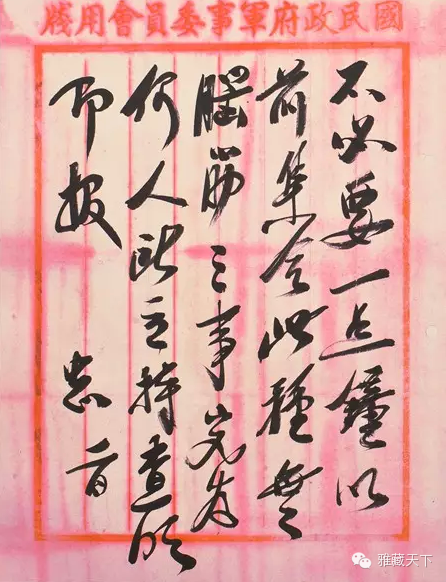 國民政府軍事委員會用牋
不必要一点鐘以
前集合此種無
腦筋之事究为
何人所主持查明
即报
雅藏天下